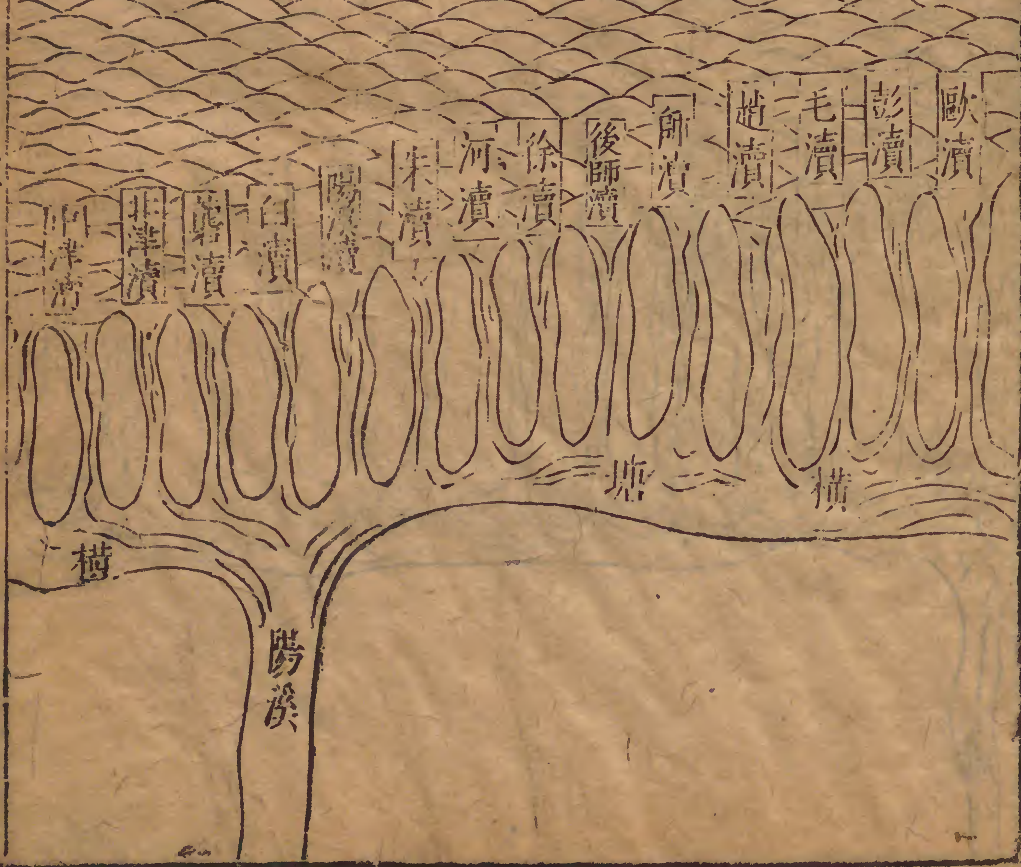 歐瀆
彭瀆
毛瀆
趙瀆
師瀆
後師瀆
徐瀆
河瀆
朱瀆
陽溪瀆
百瀆
龔瀆
瀆
橫
塘
橫
陽溪